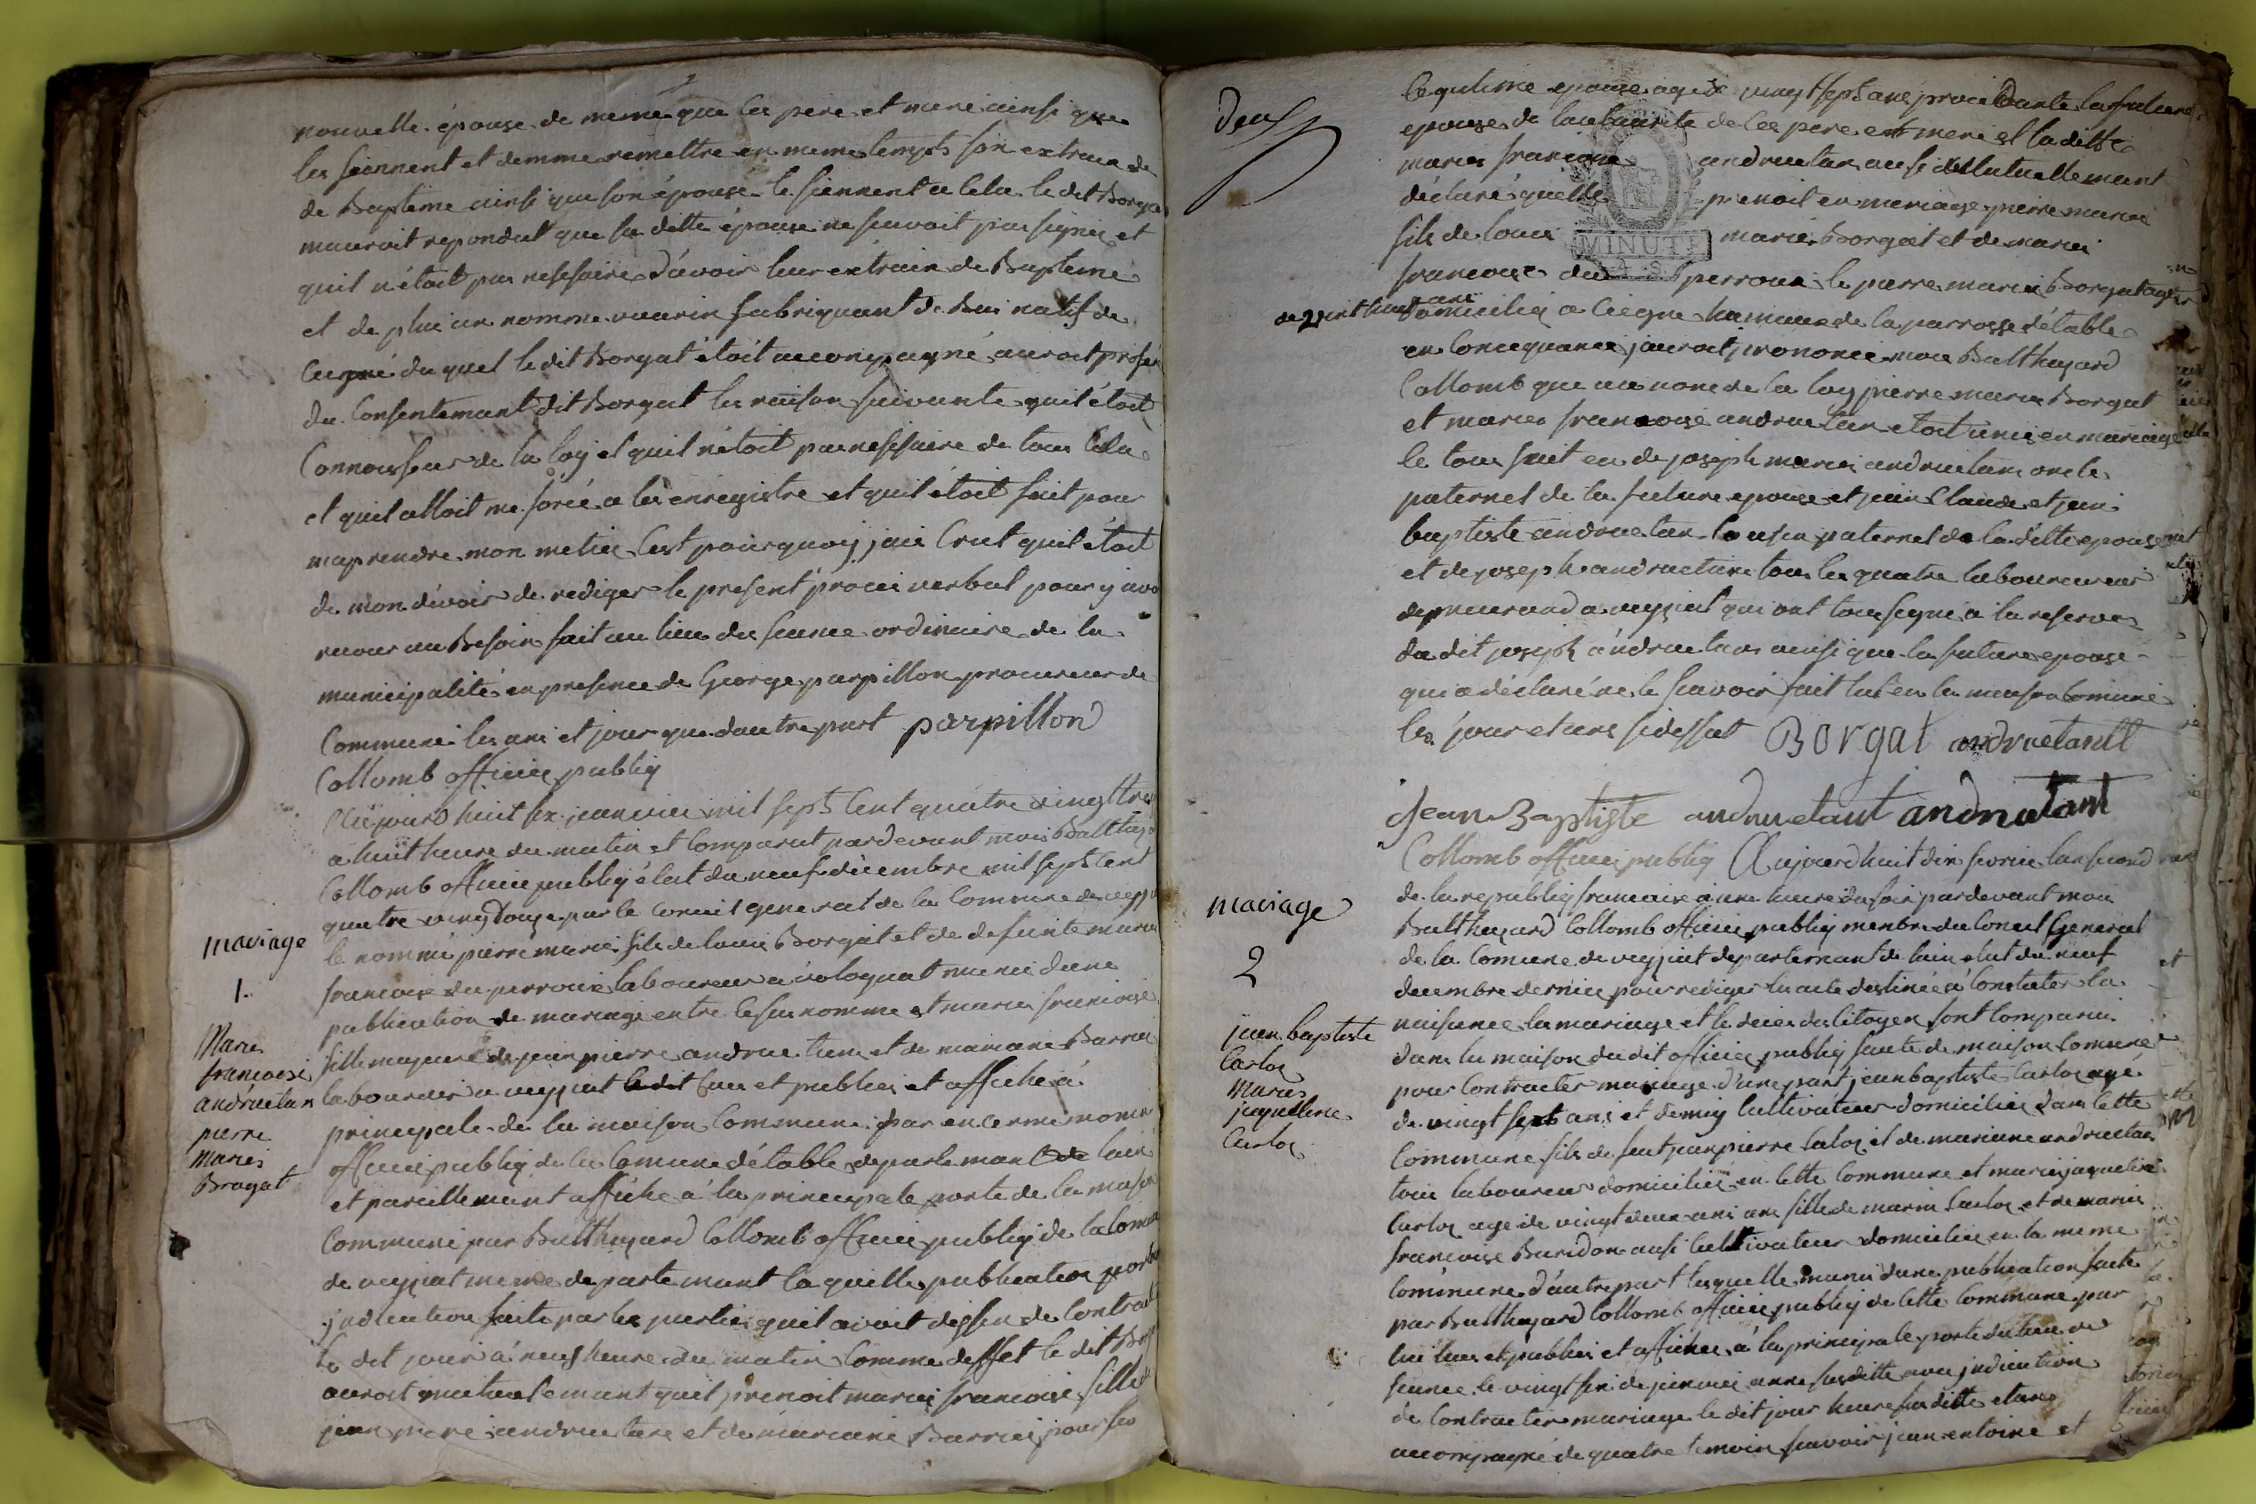 nouvelle épouse de meme que les pere et mere ainsi que
les siennent et demme remettre en meme temps son extrais de
de Bapteme ainsi que son épouse le siennent a cela le dit Borga
mauroit repondut que sa ditte épouse ne savoit pas signer et
quil n'étoit pas nessesaire d'avoir leur extrais de Bapteme
et de plus un nomme fabriquant de Bui natif de
du quel le dit Borgat étoit acompagné auroit
du Consentemant dit Borgat les raison suivante quil étoit
Connoisseur de la loy et quil nétoit pas nessesaire de tous Cela
et quil alloit me forcé a les enregistre et quil étoit fait pour
maprendre mon metier Cest pourquoy jai Crut quil étoit
de mon dévoir de rediger le present procei verbal pour y avo
recour au Besoin fait au lieu des seance ordinaire de la
municipalité en presence de George parpillon procureur de
Commune les ans et jour que dautre part parpillon
Collomb officier publiq
Aujourd huit six janvier mil sept Cent quatre vingt trei
a huit heure du matin et Comparut pardevant moi Balthaza
Collomb officier publiq élut du neuf décembre mil sept Cent
quatre ving Douze par le Conseil general de la Commune de veyzia
le nommé pierre marie fils de louis Borgat et de defuinte marie
francoise du perroux laboureur a voloquat munie dune
publication de mariage entre le sus nomme et marie francoise
fille majeure de jean pierre andrue tan et de mariane Barrai
laboureur a veyziat le dit lue et publier et affiché a
principale de la maison Commune par
officier publiq de la Comune détable departemant de lain
et pareillement affiche a la principale porte de la maison
Commune par Balthazard Collomb officier publiq de la Comm
de veyziat meme departemant laquelle publication porta
jndication faite par les partie quil avoit dessein de Contract
le dit jour a neuf heure du matin Comme deffet le dit Bor
auroit mutuelemant quil prenoit marie francoise fille d
jean pierre andruetan et de mariane Barrai pour sa
mariage
1.
Marie
francoise
andruetan
pierre
marie
Bragat
Deux
legitime epouse agée de vingt sept ans procedante la future
epouse de lauthorite de ces pere et mere et la ditte
marie francoise andruetan ausi Mutuellemant
déclaré quelle prenoit en mariage pierre marie
fils de louis marie Borgat et de marie
francoise du perroux le pierre marie Borgat agée
de vint huit ans
domicilié a Ciegne hameau de la parroisse détable
en Concequance jauroit prononcé moi Balthazard
Collomb que au nom de la loy pierre marie Borgat
et marie francoise andruetan etoit unis en mariage
le tous fait en de joseph marie andruetan oncle
paternel de la future epouse et jean Claude et jean
baptiste andruetan Cousin paternel de la ditte epouse
et de joseph andruetan tous les quatre laboureur
demeurand a veyziat qui ont tous signé a la reserve
du dit joseph andruetan ainsi que la future epouse
qui a déclaré ne le savoir fait lut en la maison Comune
les jour et ans sidessut Borgat andruetantt
MINUTE
Jean Baptiste andruetant andruetant
Collomb officier publiq Aujourd huit dix fevrier lan second
de la republiq francaise a une heure du soir pardevant moi
Balthazard Collomb officier publiq membre du Conseil General
de la Comune de veyziat departemant de lain elut du neuf
decembre dernier pour rediger les acte destinée a Constater la
naisance la mariage et le décés des Citoyen sont Comparu
dans la maison du dit officier publiq faute de maison Comune
pour Contracter mariage d'une part jean baptiste Carloz agé
de vingt sept ans et demiy Cultivateur domicilié dans Cette
Commune fils de feut jean pierre Caloz et de mariane andruetan
tous laboureur domicilié en Cette Commune et marie jaqueline
Carloz agé de vingt deux ans une fille de marin Carloz et de marie
francoise Buridon ausi Cultivateur domicilie en la meme
Comune d'autre part laquelle munie dune publication faite
par Balthazard Collomb officier publiq de Cette Commune par
lui lue et publier et affichée a la principale porte du lieu de
seance le vingt six de janvier anne susditte avec jndication
de Contracter mariage le dit jour heure susditte etans
acompagné de quatre temoin savoir jean antoine et
mariage
2
jean baptiste
Carloz
Marie
jaqueline
Carloz